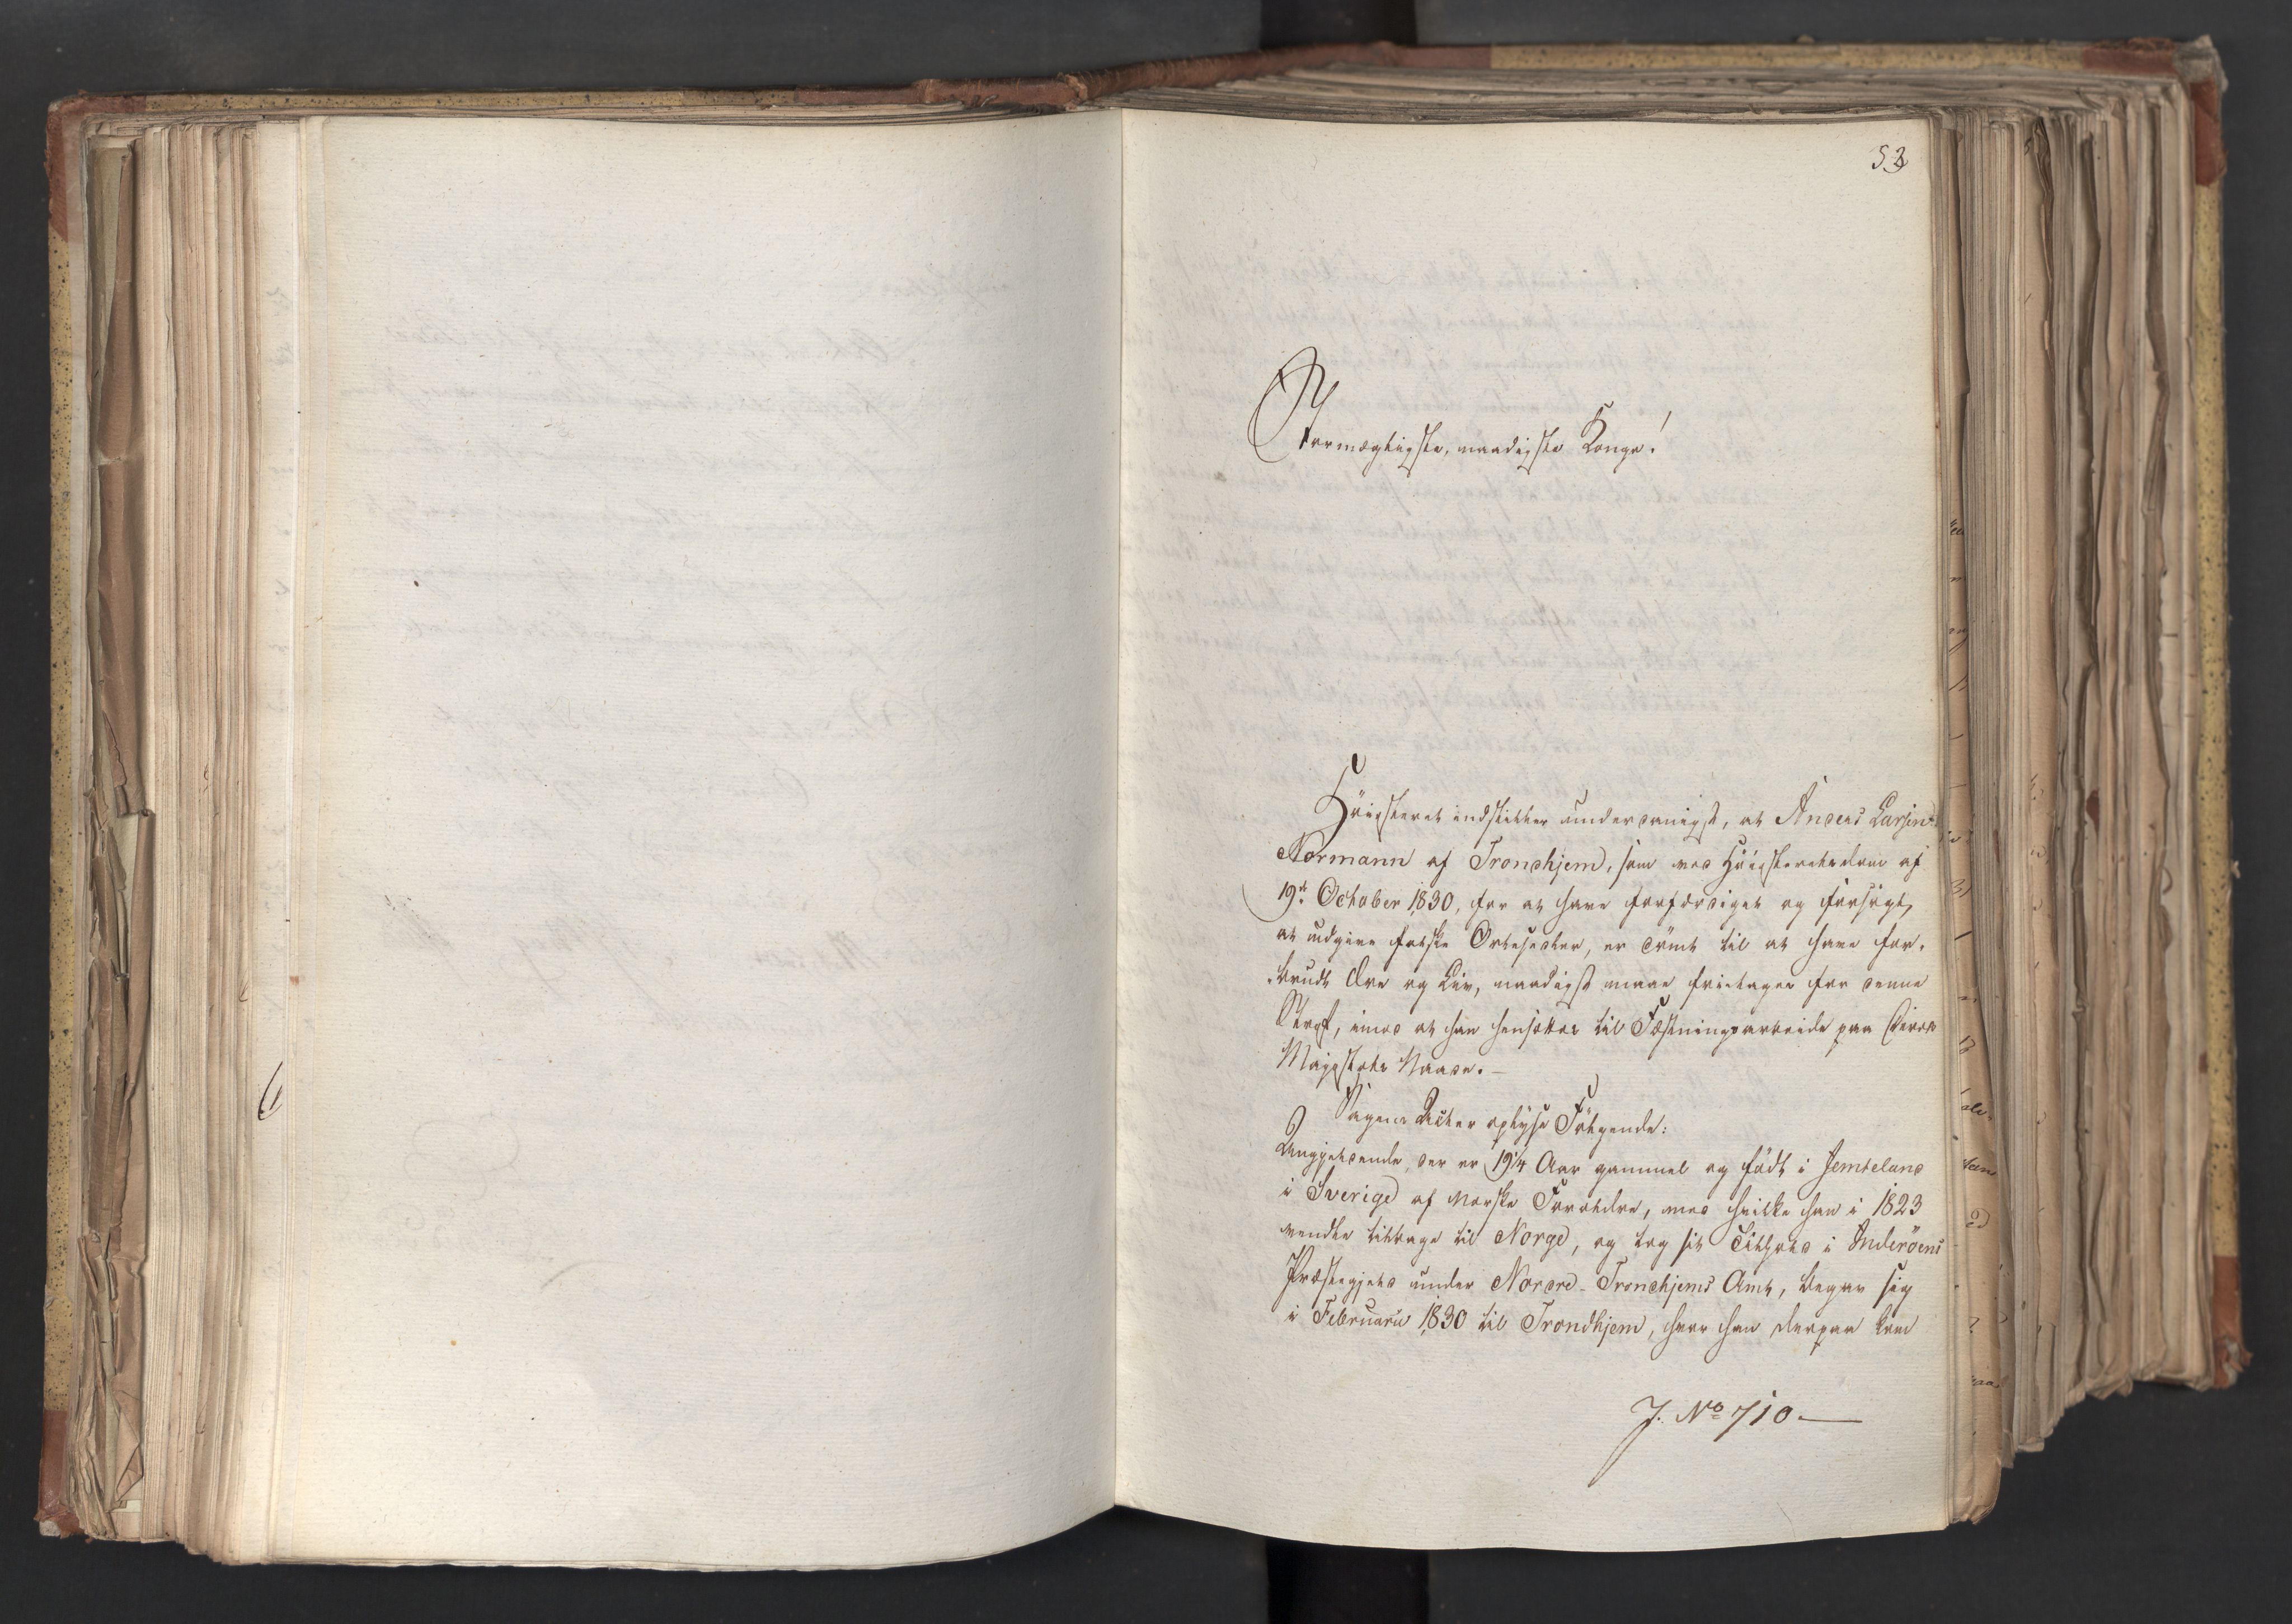 53
Stormægtigste, naadigste Konge!
Höiesteret indstiller underdanigst, at Anders Larsen
Normann af Trondhjem, som ved Höiesteretsdom af
19de October 1830, for at have forfærdiget og forsøgt
at udgive falske Ortesedler, er dömt til at have for-
-brudt Ære og Liv, naadigst maae fritages for denne
Straf, imod at han hensættes til Fæstningsarbeide paa Deres
Majestæts Naade. —
Sagens Acter oplyse Fölgende:
Angjeldende, der er 19¼ Aar gammel og födt i Jemteland
i Sverige af norske Forældre, med hvilke han i 1823
vendte tilbage til Norge, og tog sit Tilhold i Inderöens
Præstegjeld under Nordre-Trondhjems Amt, begav sig
i Februarii 1830 til Trondhjem, hvor han derpaa kom
J. No 710. —